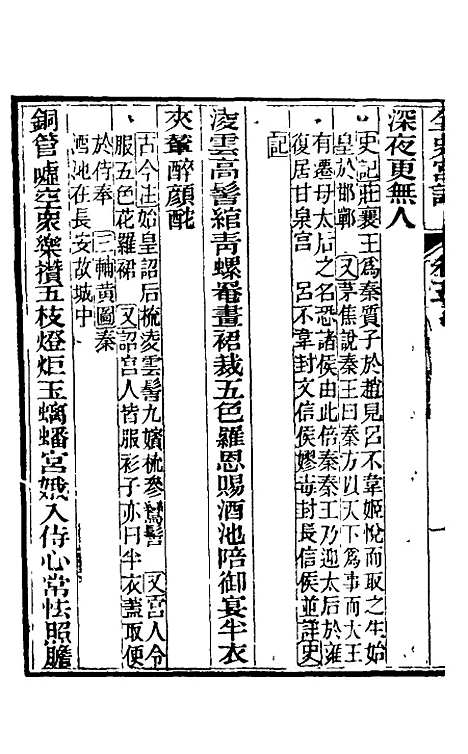 全史宮詞
深夜更無人
史記莊襄王爲秦質子於趙見呂不韋姬悅而取之生始
皇於邯鄲 又茅焦說秦王曰秦方以天下爲事而大王
有遷母太后之名恐諸侯由此倍秦秦王乃迎太后於雍
復居甘泉宮 呂不韋封文信侯嫪毐封長信侯並詳史
記
淩雲高髻綰青螺菴畫裙裁五色羅恩賜酒池陪御宴半衣
夾輦醉顏酡
古今注始皇詔后梳淩雲髻九嬪梳參鸞髻 又宮人令
服五色花羅裙 又詔宮人皆服衫子亦曰半衣蓋取便
於侍奉 三輔黃圖秦
酒池在長安故城中
銅管噓空衆樂攢五枝燈炬玉螭蟠宮娥入侍心常怯照膽